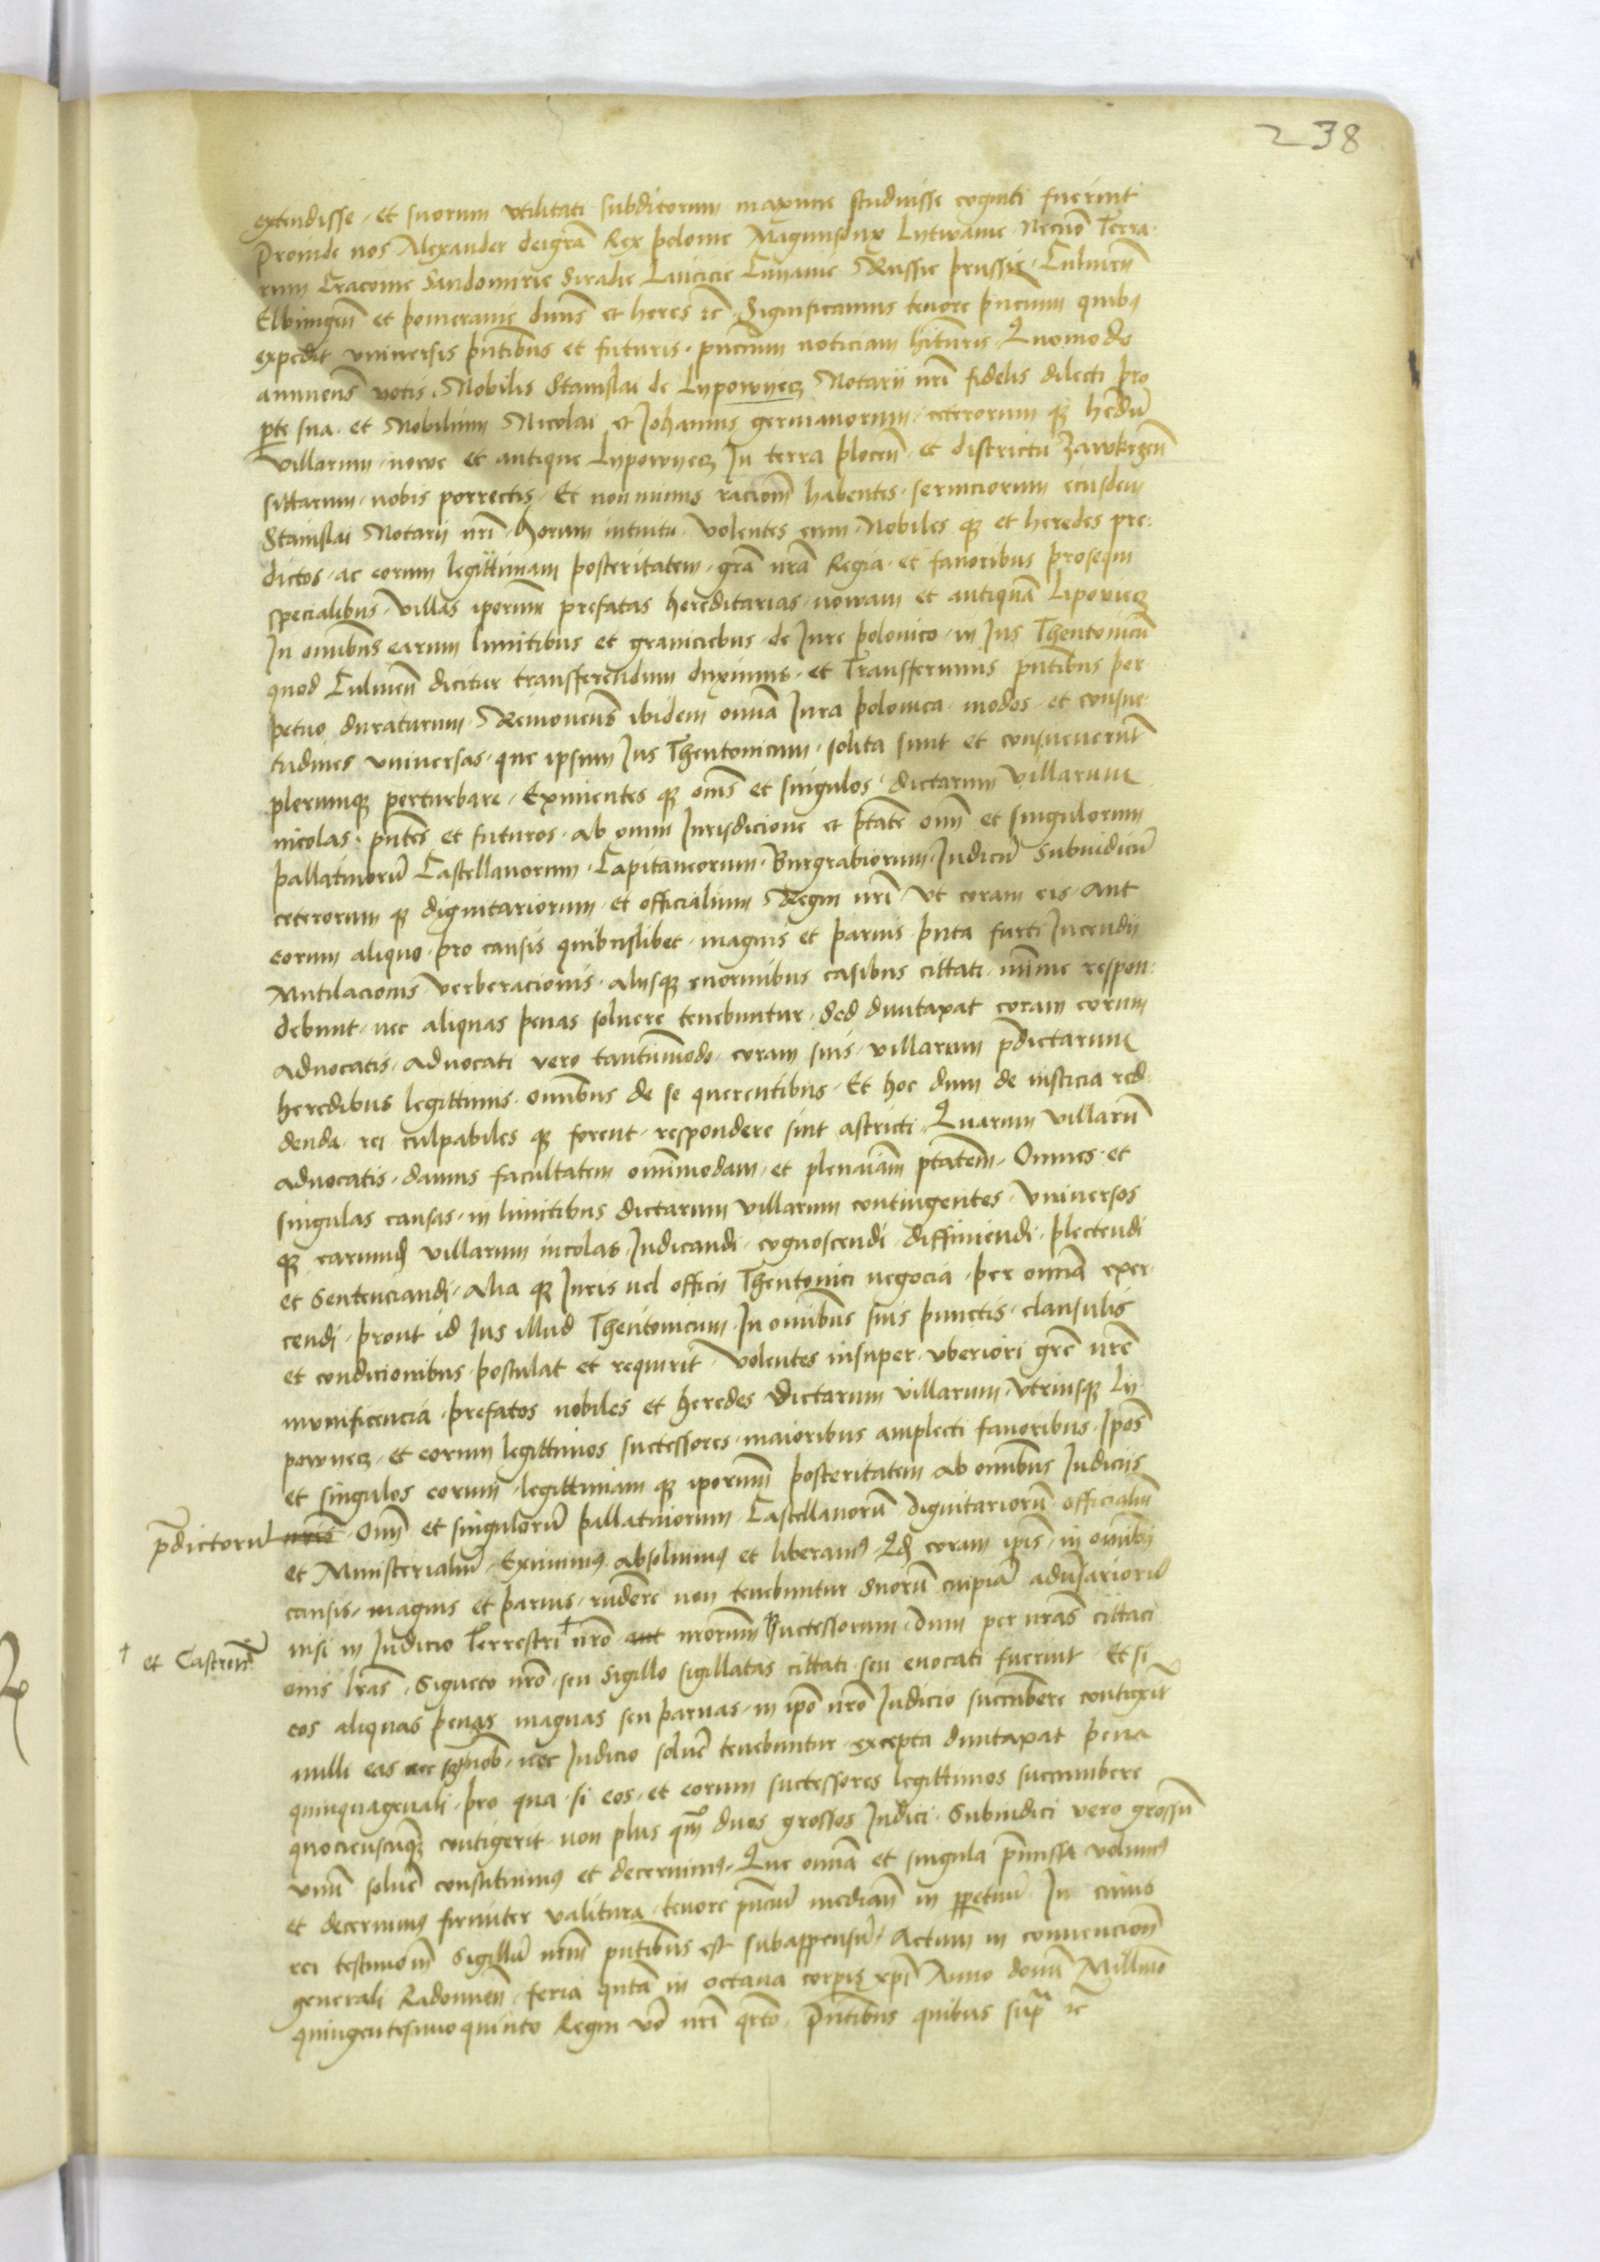 238
extendisse · et suorum vtilitati subditorum maxime studuisse cogniti fuerint
Proinde nos Alexander deigrã Rex polonie Magnusdux Lytwanie Necnõ Terra·
rum Cracouie Sandomirie Siradie Lancicie Cuyauie Russie prussie · Culmeñ
Elbingeñ et pomeranie dnus et heres &c̃ · Significamus tenore pñcium quibꝫ
expedit vniuersis pñtibus et futuris · pñcium noticiam hituris · Quomodo
annuens votis · Nobilis Stanislai de Lypowyecz Notarii nri fidelis dilecti pro
pte sua · et Nobilium Nicolai et Johannis germanorum · ceterorum qꝫ hedũ
villarum · nowe et antique Lypowyecz In terra ploceñ · et districtu Zawkrzeñ
sittarum · nobis porrectis · Et non minus racionẽ habentes · seruiciorum eiusdem
Stanislai Notarii nri · horum intuitu · volentes eum · Nobiles qꝫ et heredes pre·
dictos · ac eorum legittimam posteritatem · grã nrã Regia · et fauoribus prosequi
specialibus · villas iporum prefatas hereditarias · nowam et antiquã Lipowiecz
In omibus earum limitibus et graniciebus · de Iure polonico · in Ius Theutonicũ
quod Culmeñ dicitur transferendum duximus · et Transferimus pñtibus per·
petuo duraturum · Remouens ibidem omã Iura polonica · modos · et consue·
tudines vniuersas · que ipsum Ius Theutonicum · solita sunt et consueuerũt
plerumqꝫ perturbare · Eximentes qꝫ omẽs et singulos · dictarum villarum
incolas · pñtes et futuros · ab omni Iurisdicione et ptate omñ et singulorum
pallatinorũ Castellanorum · Capitaneorum · Burgrabiorum · Iudicũ Subiudicũ
ceterorum qꝫ dignitariorum · et officialium Regni nri · Vt coram eis · aut
eorum aliquo · pro causis quibuslibet · magnis et paruis · puta furti Incendii
Mutilacionis verberacionis · aliisqꝫ enormibus casibus cittati · mĩme respon·
debunt · nec aliquas penas soluere tenebuntur · Sed duntaxat coram eorum
aduocatis · aduocati vero tantummodo · coram suis · villarum pdictarum
heredibus legittimis · omibus de se querentibus · Et hoc dum de iusticia red·
denda · rei culpabiles qꝫ forent · respondere sint astricti · Quarum villarũ
aduocatis · damus facultatem omnimodam · et plenariam ptatem · Omnes · et
singulas causas · in limitibus dictarum villarum contingentes · Vniuersos
qꝫ earumdẽ villarum incolas · Iudicandi · cognoscendi · diffiniendi · plectendi
et Sentenciandi · Alia qꝫ Iuris uel officii Theutonici negocia · per omĩa exer·
cendi · prout id Ius illud Theutonicum · In omibus suis punctis · clausulis
et condicionibus · postulat et requirit · Volentes insuper · vberiori grẽ nrẽ
munificencia · prefatos nobiles et heredes dictarum villarum · vtriusqꝫ Ly·
powyecz · et eorum legittimos successores · maioribus amplecti fauoribus · Ipos
et singulos eorum · legittimam qꝫ iporum posteritatem · ab omibus Iudiciis
pdictorũ nris · Omñ et singulorũ pallatinorum · Castellanorũ dignitariorũ officialiũ
et Ministerialiũ · Eximimus absoluimus et liberamus · Qđ coram ipis · in omibꝫ
causis · magnis et paruis · rñdere non tenebuntur suorũ cuipiã adũsariorũ
nisi in Iudicio Terrestri † nrõ aut nrorum Successorum · dum per nras cittaci
† et Castreñ
onis lras · Signeto nrõ · seu Sigillo sigillatas cittati · seu euocati fuerint · Et si
eos aliquas penas magnas seu paruas · in ipo nrõ Iudicio succubere contigerit
nulli eas nec nob · nec Iudicio soluẽ tenebuntur · excepta duntaxat pena
quinquagenali · pro qua · si eos · et eorum successores legittimos succumbere
quocienscumqꝫ contigerit · non plus qm duos grossos Iudici · Subiudici vero grossũ
vnũ soluẽ constituimus et decernimus · Que omĩa et singula pmissa volumus
et decernimus firmiter valitura · tenore pñciũ mediañ in ppetuũ · In cuius
rei testimoniũ Sigillũ nrm pñtibus est subappensũ · Actum in conuencioñ
generali Radomieñ · feria qnta in octaua corpis xpi Anno domi Millmo
quingentesimo quinto Regni vo nri qrto · Pñtibus quibus supra &c̃